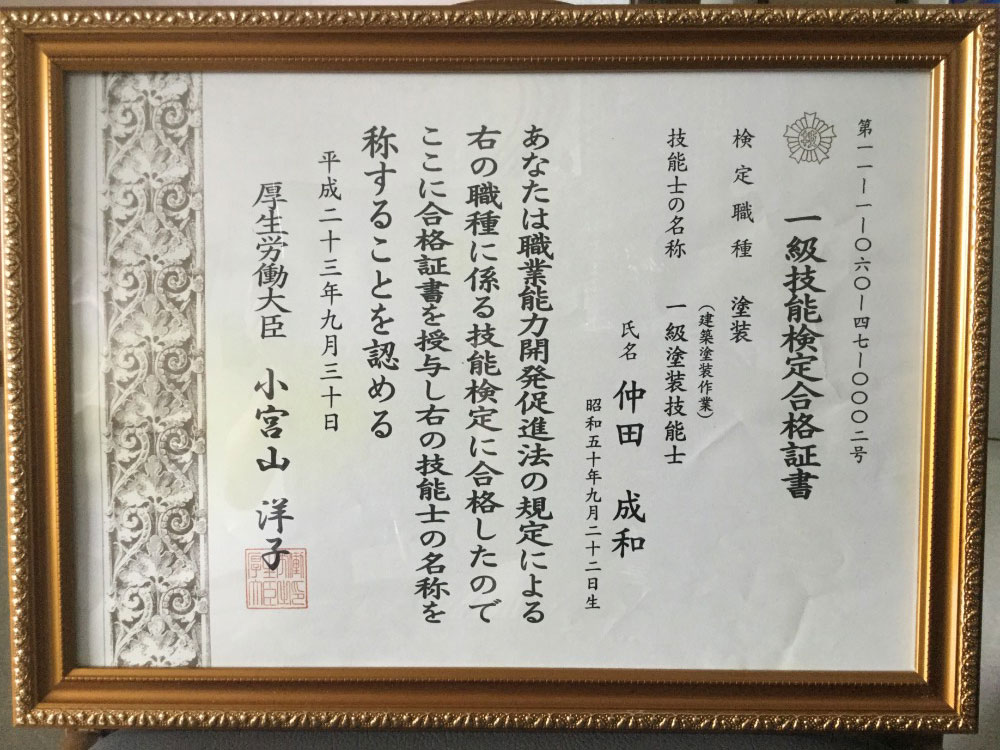 第一一一一〇六〇一四七一〇〇〇二号
一級技能検定合格証書
検定職種 塗装
(建築塗装作業)
技能士の名称 一級塗装技能士
氏名 仲田 成和
昭和五十年九月二十二日生
あなたは職業能力開発促進法の規定による
右の職種に係る技能検定に合格したので
ここに合格証書を授与し右の技能士の名称を
称することを認める
平成二十三年九月三十日
厚生労働大臣 小宮山 洋子